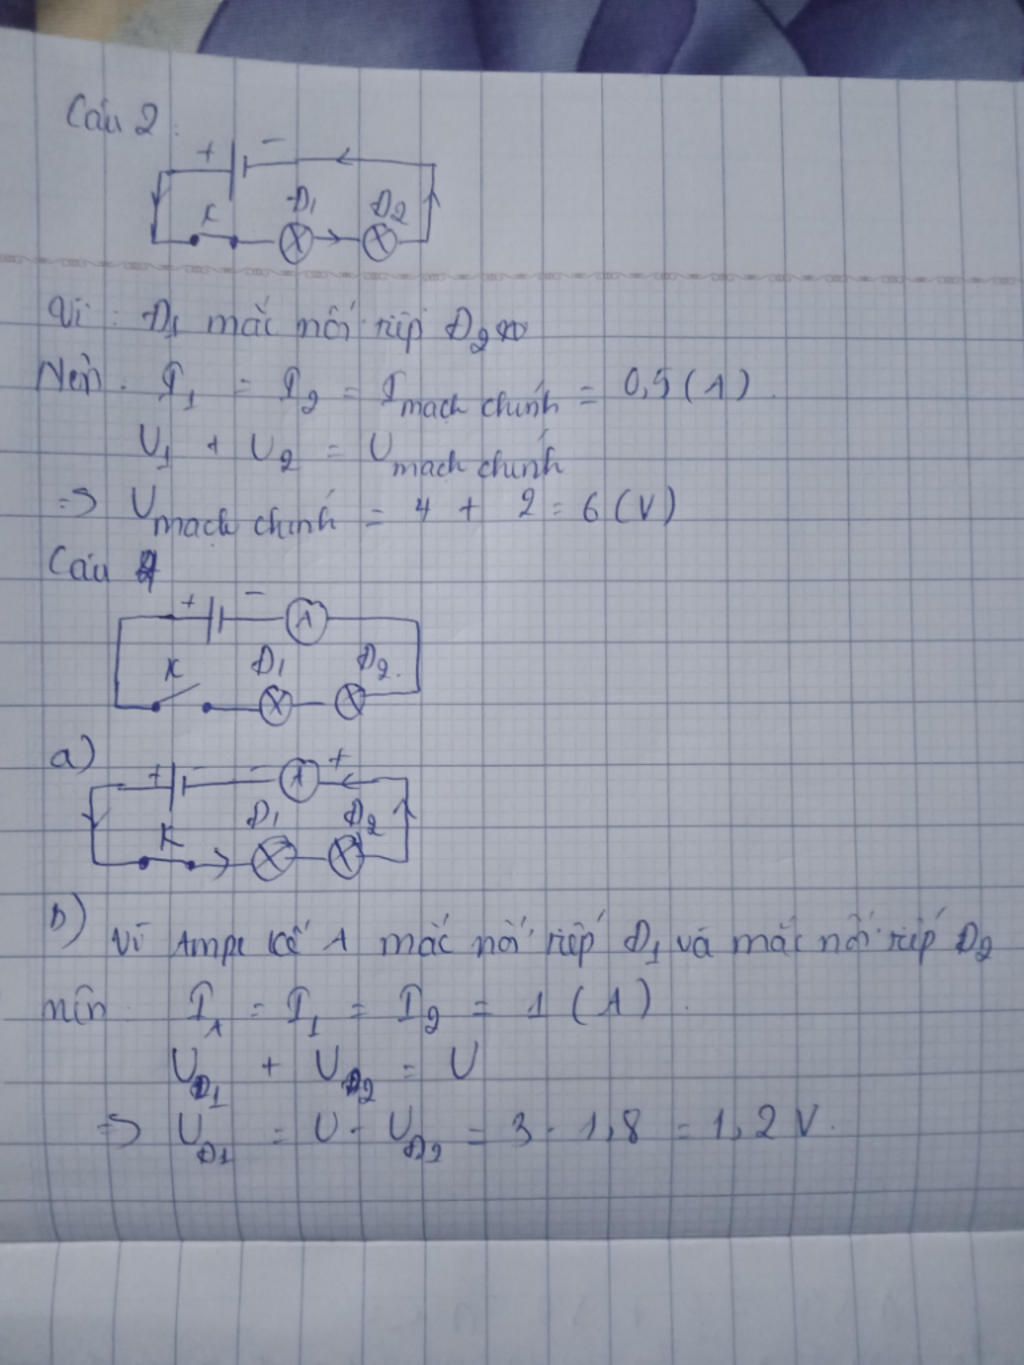 Câu 2:
+ -
K Đ1 Đ2
Vì: Đ1 mắc nối tiếp Đ2
Nên. I1 = I2 = I mạch chính = 0,5 (A).
U1 + U2 = U mạch chính
=> U mạch chính = 4 + 2 = 6 (V)
Câu 4
+ - A
K Đ1 Đ2.
a)
+ - - A +
K Đ1 Đ2
b) Vì Ampe kế A mắc nối tiếp Đ1 và mắc nối tiếp Đ2
nên. IA = I1 = I2 = 1 (A).
UĐ1 + UĐ2 = U
=> UĐ1 = U - UĐ2 = 3 - 1,8 = 1,2 V.